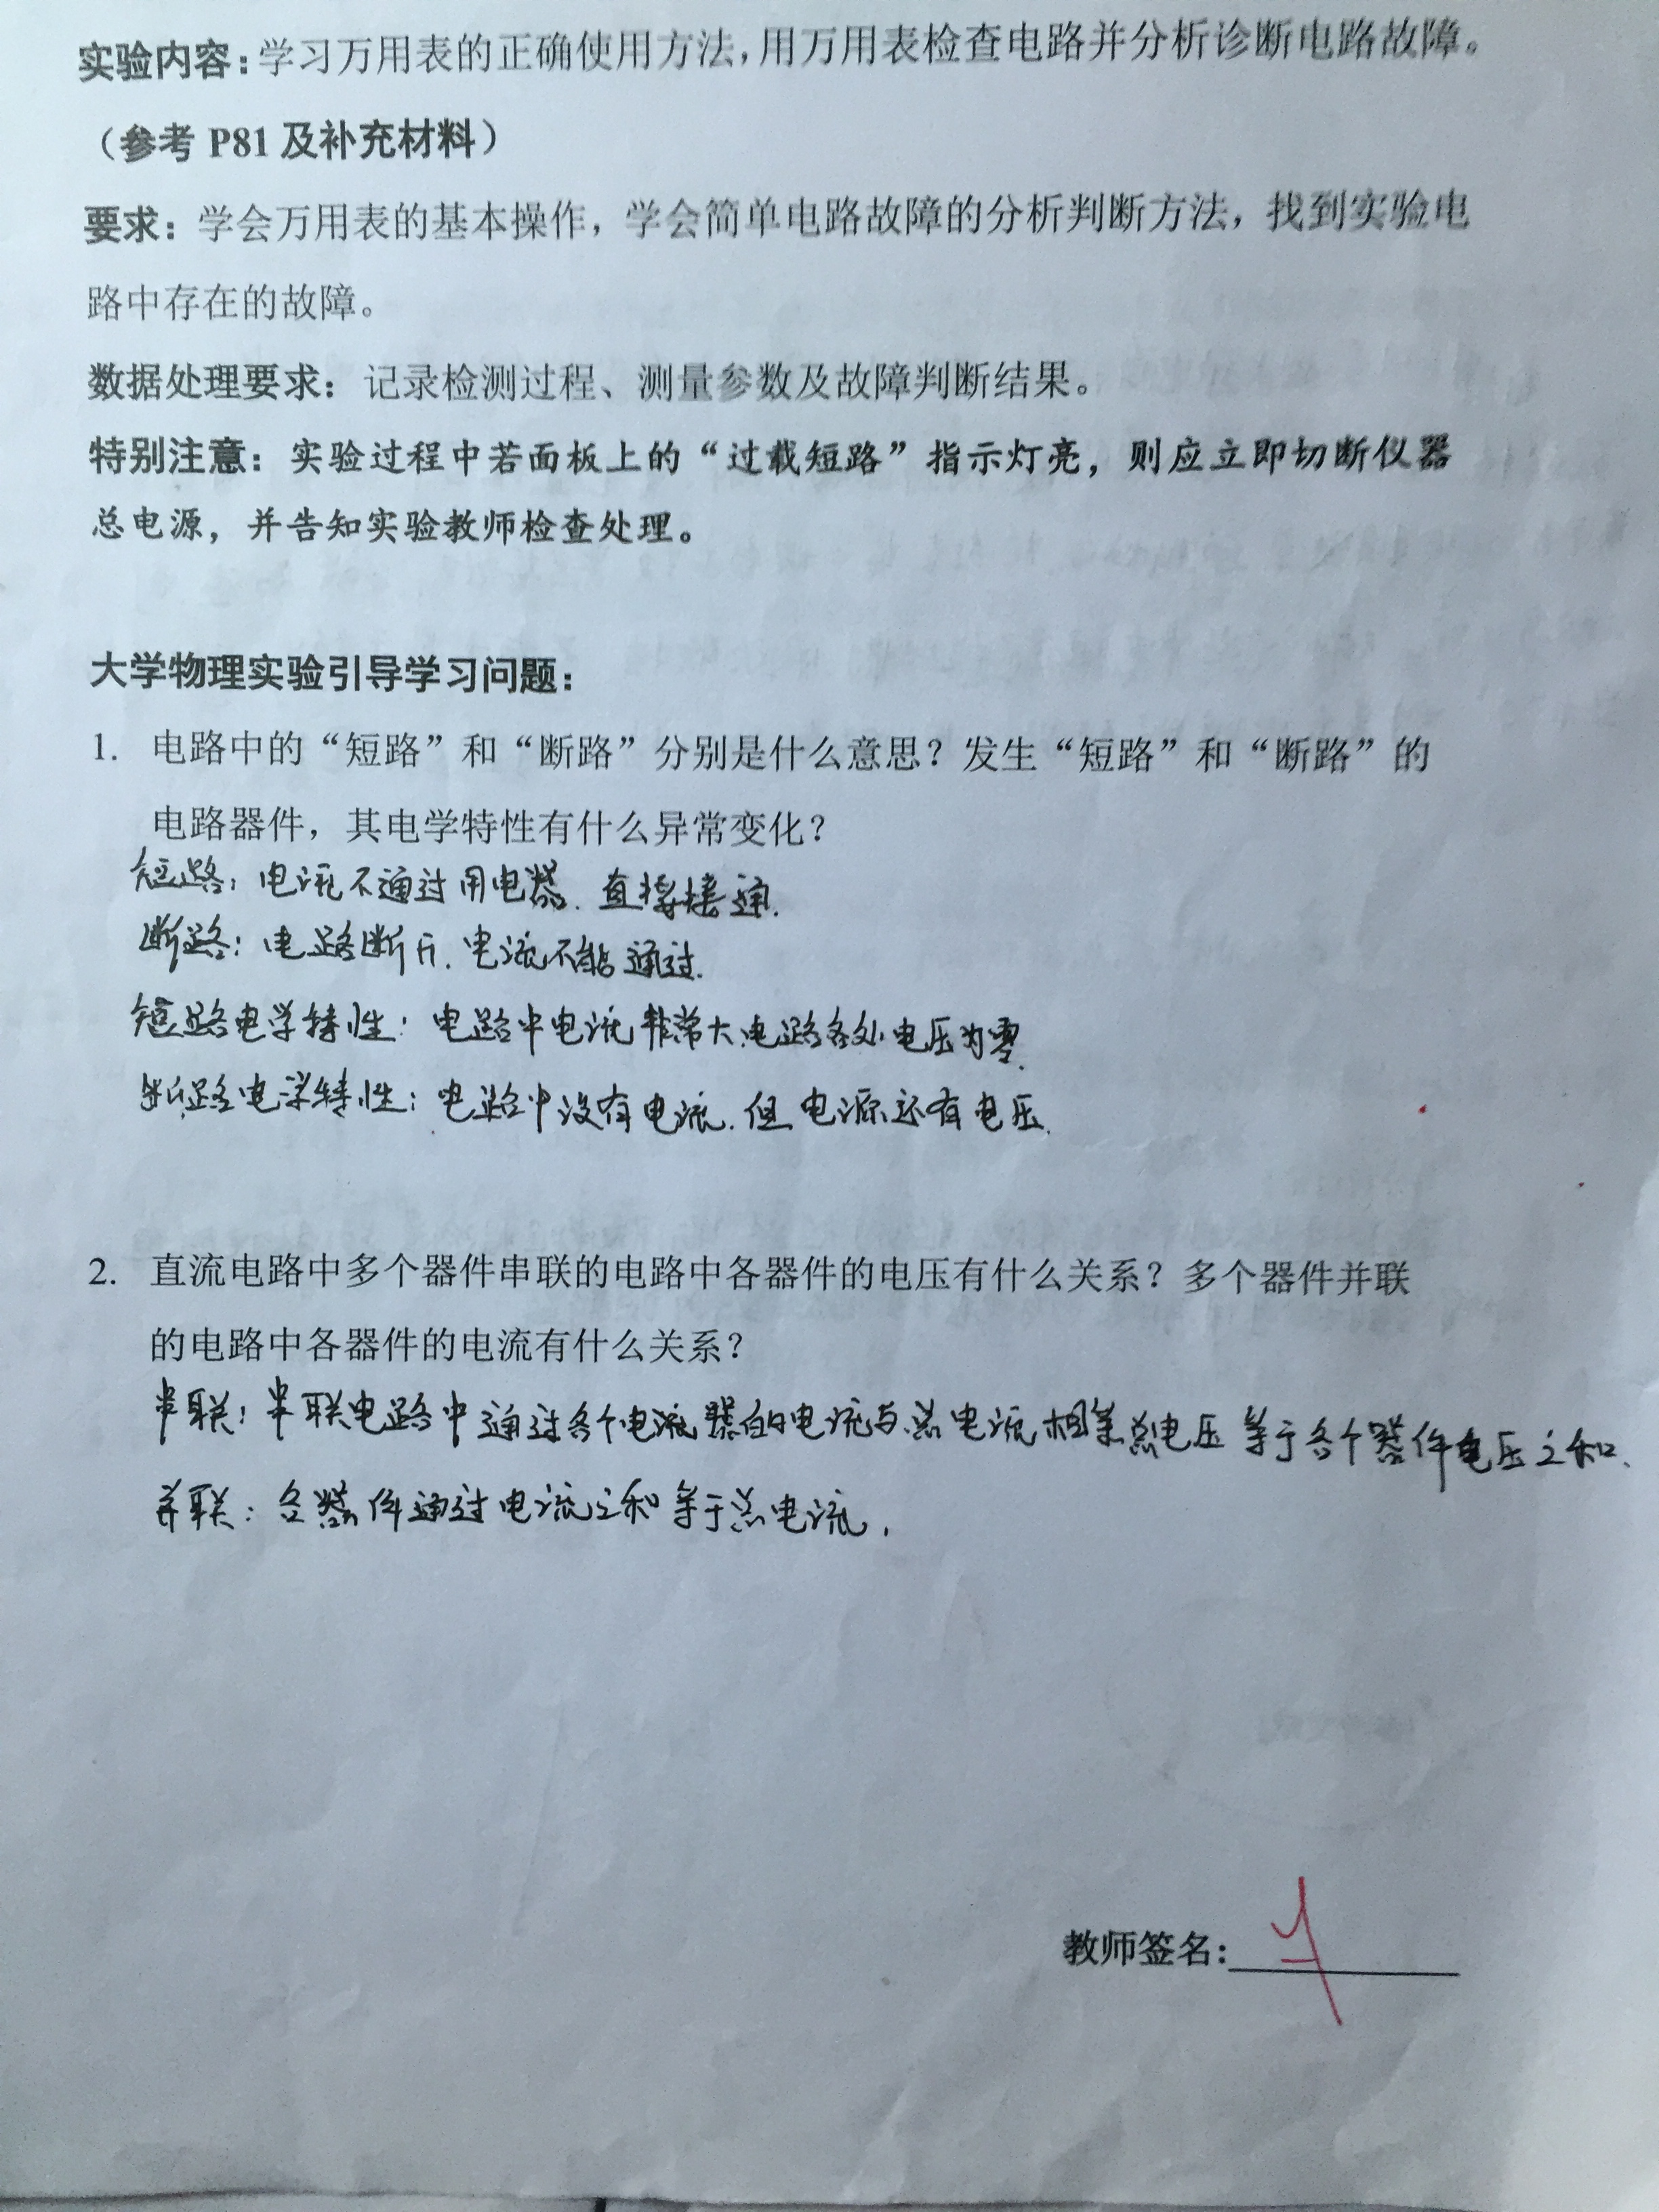 实验内容:学习万用表的正确使用方法,用万用表检查电路并分析诊断电路故障。
（参考 P81 及补充材料）
要求：学会万用表的基本操作，学会简单电路故障的分析判断方法，找到实验电
路中存在的故障。
数据处理要求：记录检测过程、测量参数及故障判断结果。
特别注意：实验过程中若面板上的“过载短路”指示灯亮，则应立即切断仪器
总电源，并告知实验教师检查处理。
大学物理实验引导学习问题：
1. 电路中的“短路”和“断路”分别是什么意思？发生“短路”和“断路”的
电路器件，其电学特性有什么异常变化？
短路：电流不通过用电器.直接接通.
断路：电路断开.电流不能通过.
短路电学特性：电路中电流非常大.电路各处电压为零.
断路电学特性：电路中没有电流.但电源还有电压.
2. 直流电路中多个器件串联的电路中各器件的电压有什么关系？多个器件并联
的电路中各器件的电流有什么关系？
串联：串联电路中通过各个电流器的电流与总电流相等总电压等于各个器件电压之和.
并联：各器件通过电流之和等于总电流.
教师签名: